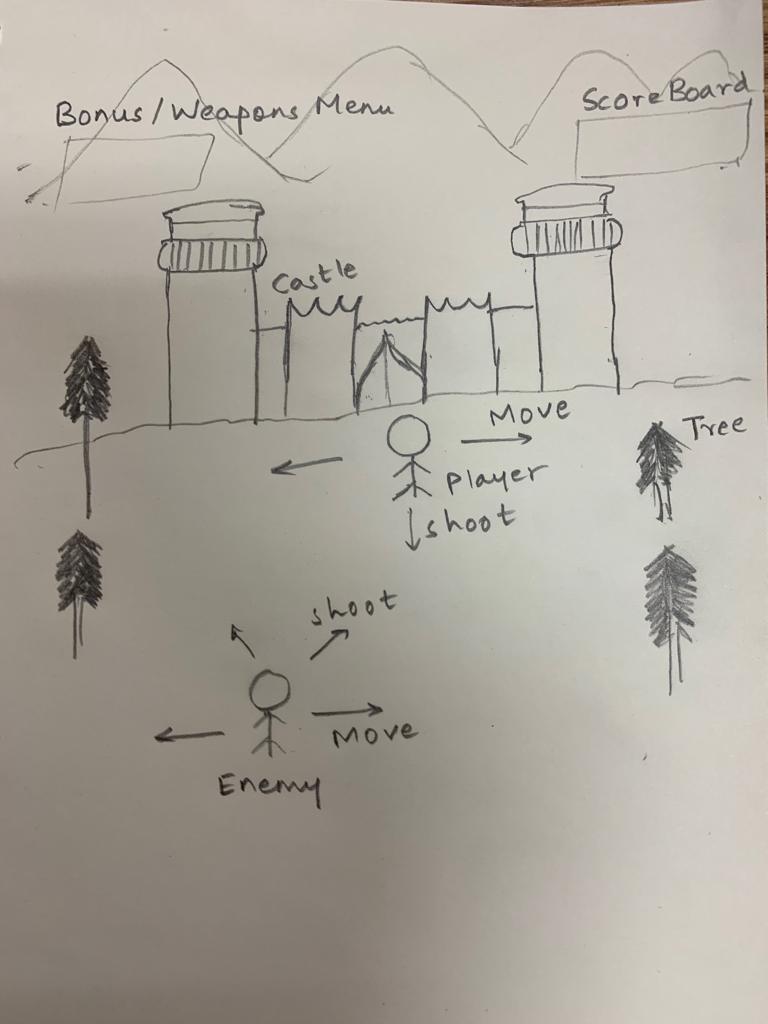 Bonus/Weapons Menu
Score Board
Castle
Move
Tree
Player
shoot
shoot
Move
Enemy